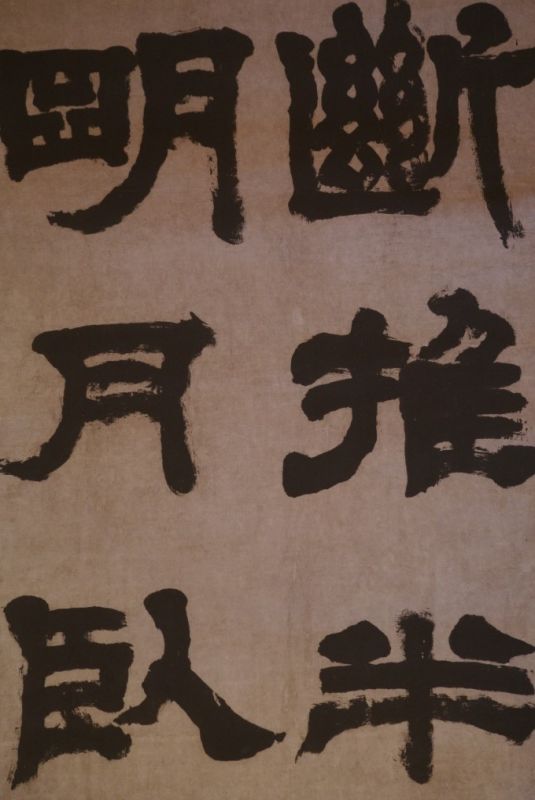 斷推半
明月臥